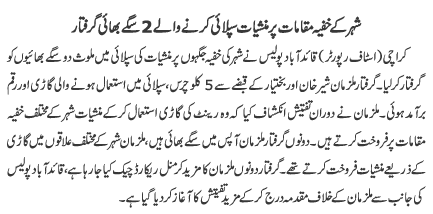 شہر کے خفیہ مقامات پر منشیات سپلائی کرنے والے 2 سگے بھائی گرفتار
کراچی (اسٹاف رپورٹر) قائد آباد پولیس نے شہر کی خفیہ جگہوں پر منشیات کی سپلائی میں ملوث دو سگے بھائیوں کو
گرفتار کرلیا۔ گرفتار ملزمان شیر خان اور بختیار کے قبضے سے 5 کلو چرس، سپلائی میں استعمال ہونے والی گاڑی اور رقم
برآمد ہوئی۔ ملزمان نے دوران تفتیش انکشاف کیا کہ وہ رینٹ کی گاڑی استعمال کر کے منشیات شہر کے مختلف خفیہ
مقامات پر فروخت کرتے ہیں۔ دونوں گرفتار ملزمان آپس میں سگے بھائی ہیں، ملزمان شہر کے مختلف علاقوں میں گاڑی
کے ذریعے منشیات فروخت کرتے تھے۔ گرفتار دونوں ملزمان کا مزید کرمنل ریکارڈ چیک کیا جارہا ہے، قائد آباد پولیس
کی جانب سے ملزمان کے خلاف مقدمہ درج کر کے مزید تفتیش کا آغاز کر دیا گیا ہے۔